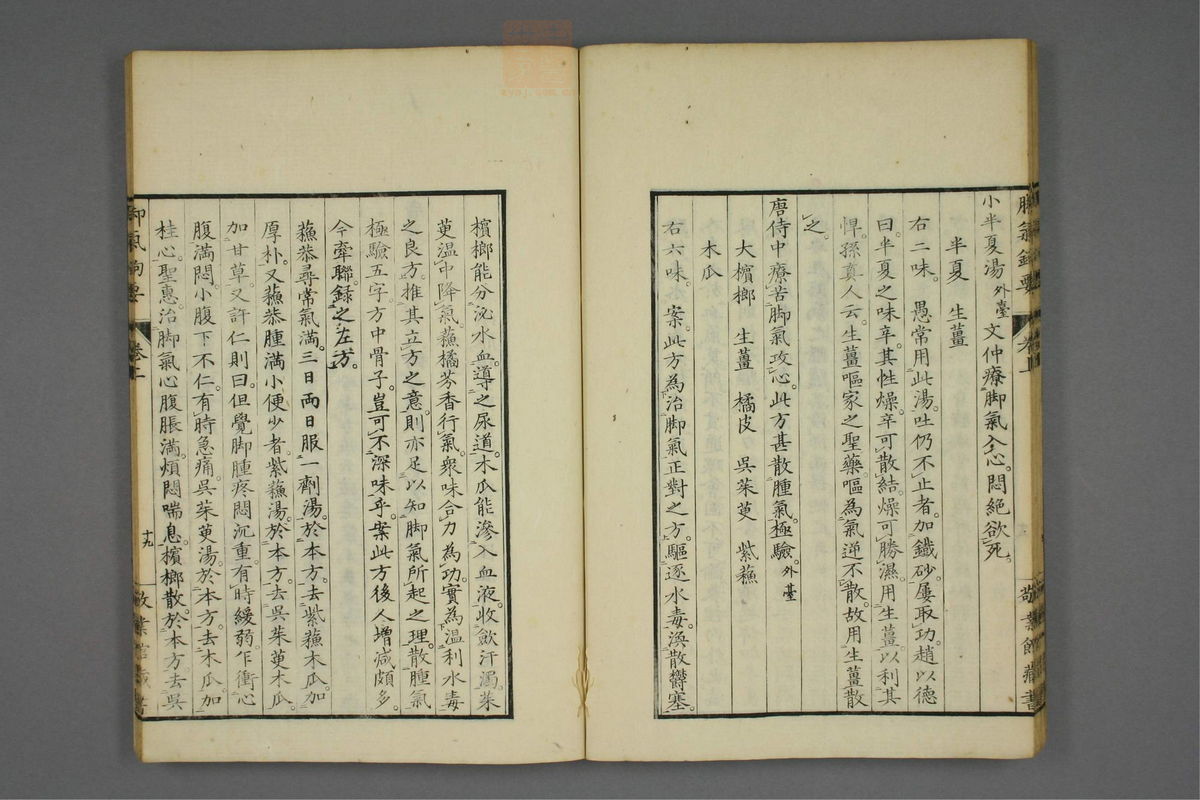 小半夏湯 外臺 文仲療脚氣入心悶絶欲死
半夏 生薑
右二味。愚常用此湯。吐仍不止者。加鐵砂。屢取功。趙以德
曰。半夏之味辛。其性燥。辛可散結。燥可勝濕。用生薑以利其
悍。孫真人云。生薑嘔家之聖藥。嘔為氣逆不散。故用生薑散
之。
唐侍中療苦脚氣攻心。此方甚散腫氣。極驗。外臺
大檳榔 生薑 橘皮 吳茱萸 紫蘓
木瓜
右六味。案。此方為治脚氣正對之方。驅逐水毒。渙散欝塞。
檳榔能分沁水血。導之尿道。木瓜能滲入血液。收斂汗濁。茱
萸溫中降氣。蘓橘芳香行氣。衆味合力為功。實為溫利水毒
之良方。推其立方之意。則亦足以知脚氣所起之理。散腫氣
極驗五字。方中骨子。豈可不深味乎。案此方後人增減頗多。
今牽聯錄之左方。
蘓恭尋常氣滿。三日兩日服一劑湯。於本方。去紫蘓木瓜。加
厚朴。又蘓恭腫滿小便少者。紫蘓湯。於本方。去吳茱萸木瓜。
加甘草。又許仁則曰。但覺脚腫疼悶沉重。有時緩弱。乍衝心
腹滿悶。小腹下不仁。有時急痛。吳茱萸湯。於本方。去木瓜。加
桂心。聖惠。治脚氣心腹脹滿。煩悶喘息。檳榔散。於本方。去吳
卷上
十九